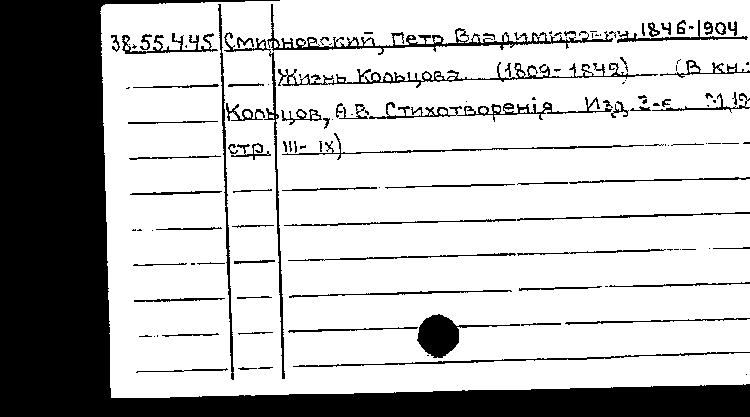 38.55.4.45 Смирновский, Петр Владимирович, 1846-1904
Жизнь Кольцова. (1809-1842) (В кн.:
Кольцов, А.В. Стихотворенія Изд. 3-е
стр. III-IX)